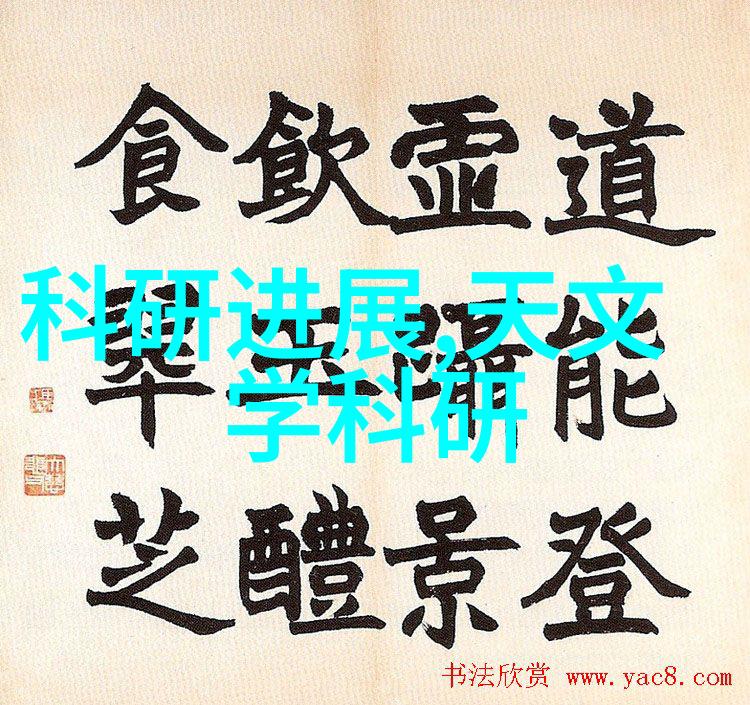 道能登
虚景
飲醴
食翠芝
科研进展,天文
学科研
书法欣赏 www.yac8.com